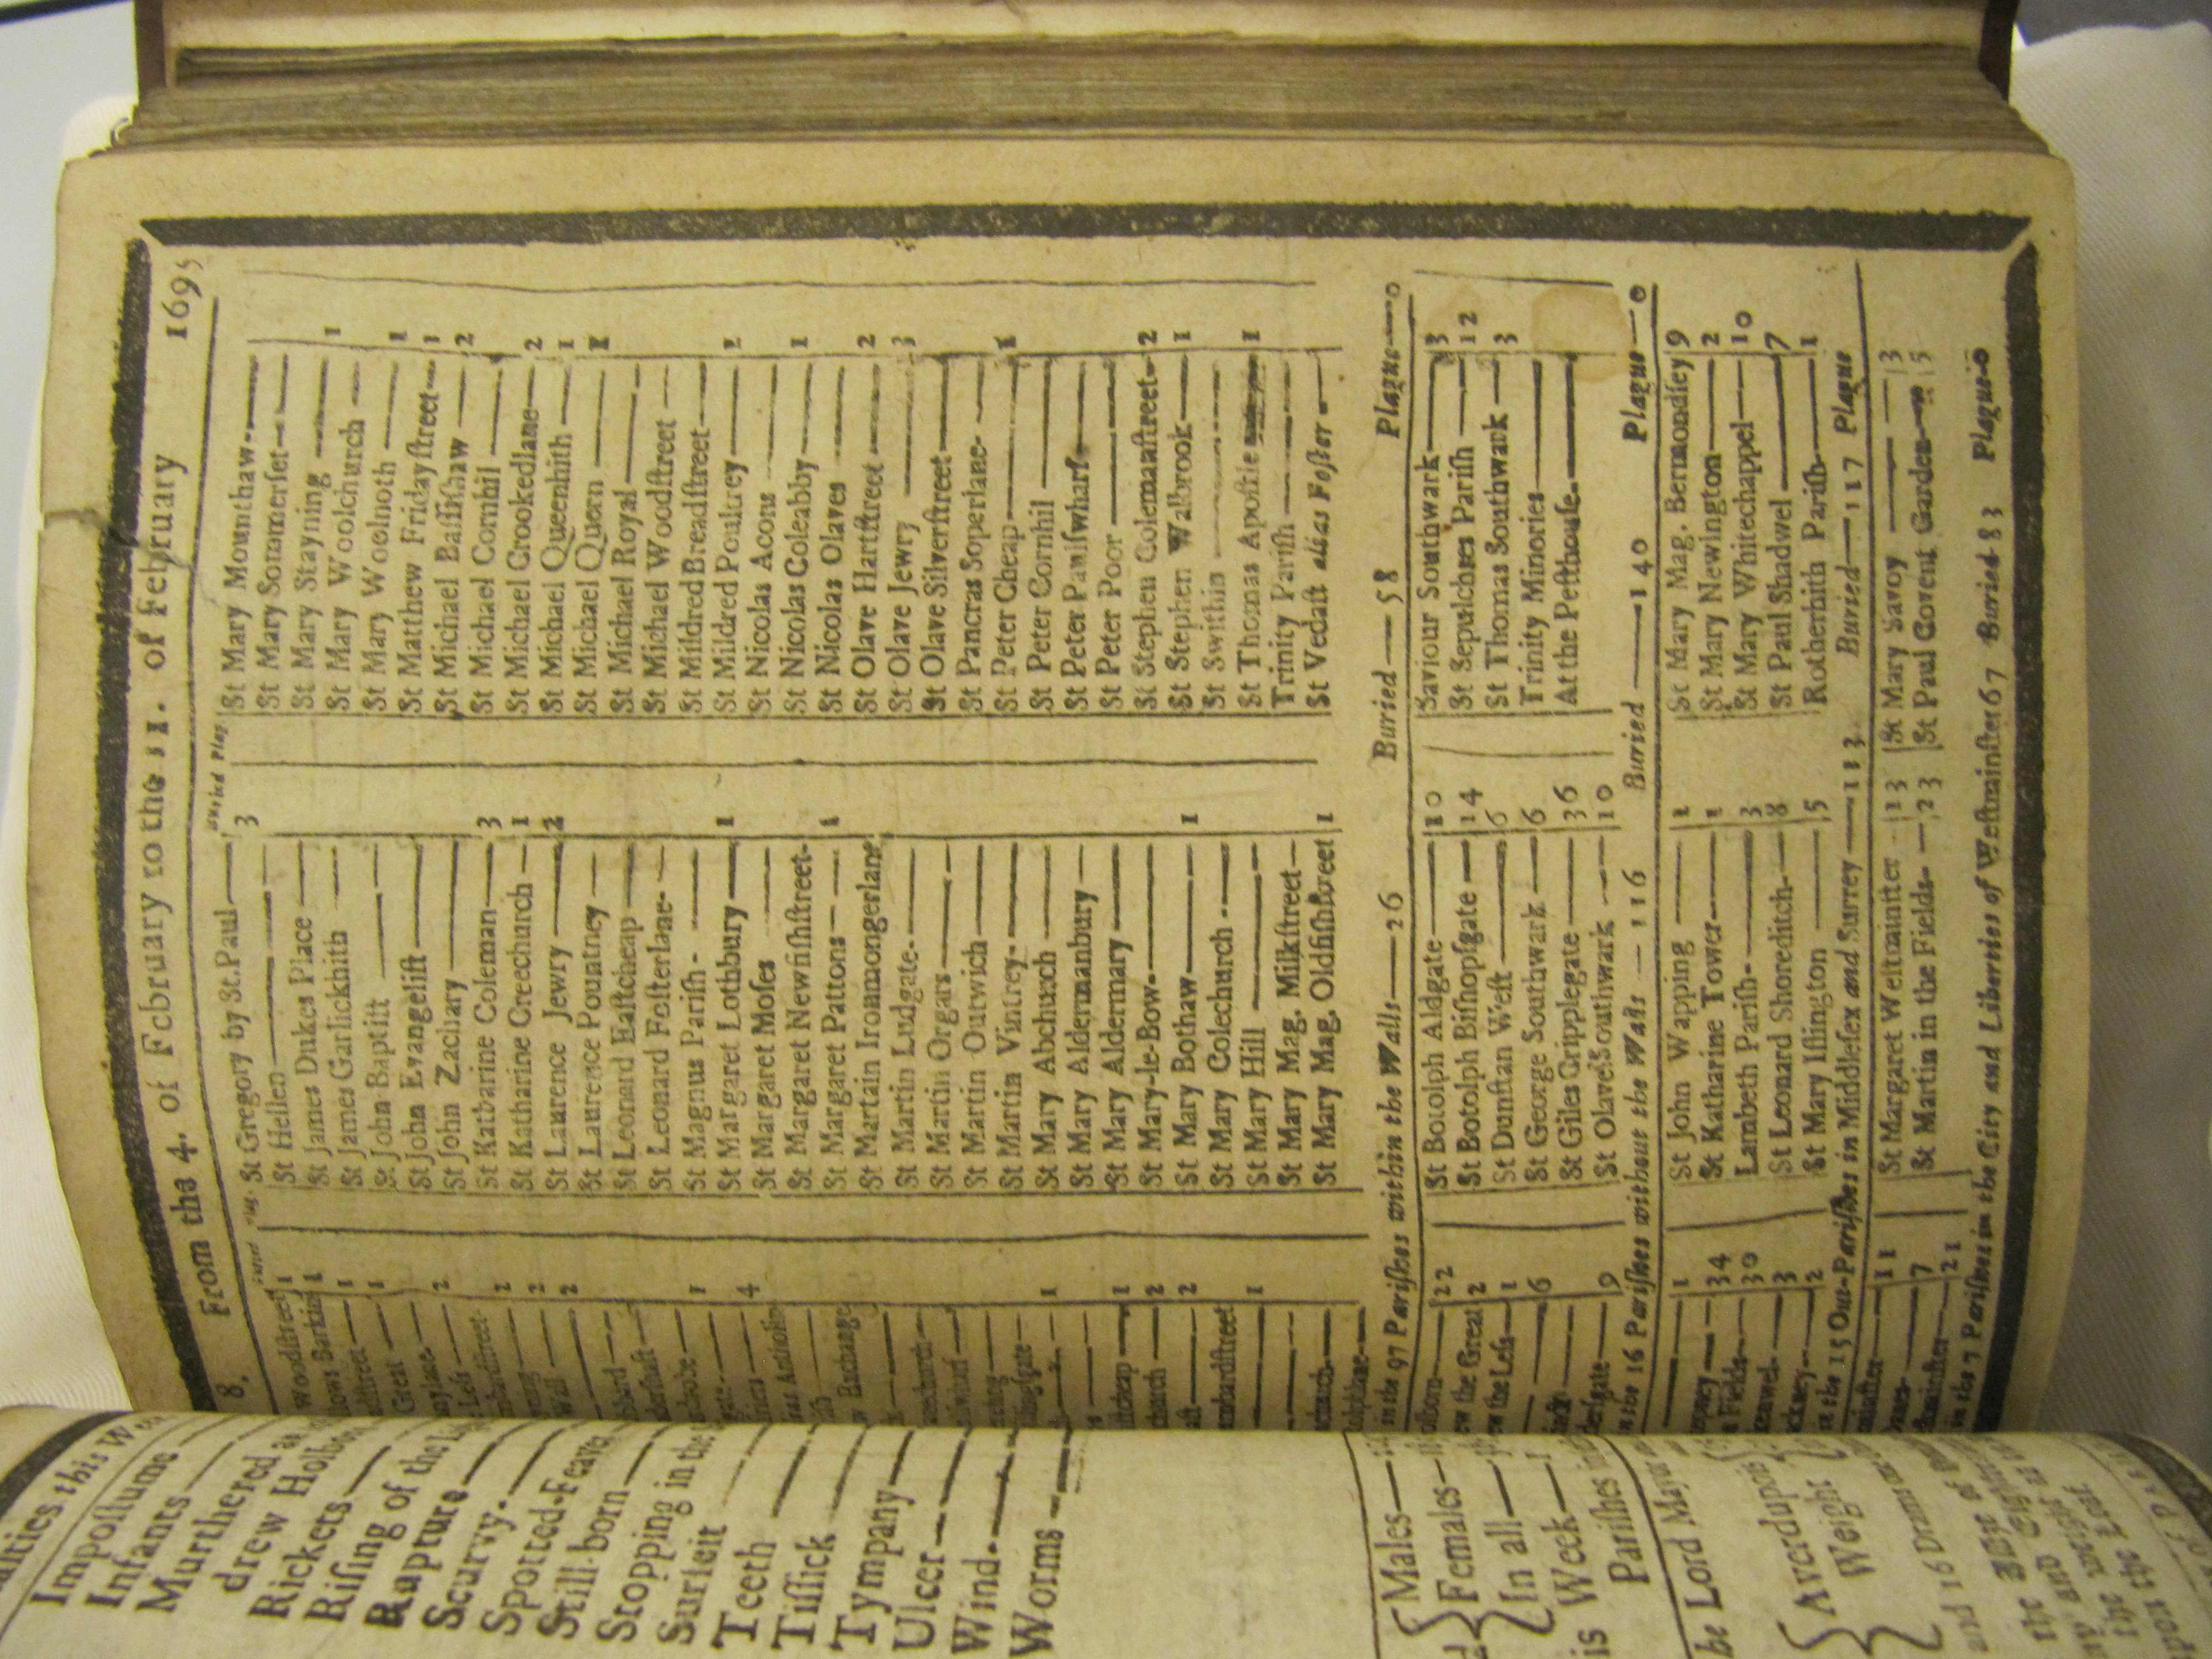 alties this Week
Impoſtume
Infants
Murthered
drew Holbo
Rickets
Riſing of the
Rupture
Scurvy
Spotted-Feaver
Still-born
Stopping in the
Surfeit
Teeth
Tiſſick
Tympany
Ulcer
Wind
Worms
Males
Females
In all
is Week
Pariſhes
he Lord Mayor
Averdupois
Weight
and 16 Drams
the
the Leaſt
upon the
8. From the 4. of February to the 11. of February 1695
Woodſtreet 1
lows Barkin 1
1
Great 1
2
Leſs
2
2
Wall 2
1
4
Exchange
1
1
2
2
1
Buried Plag
St Gregory by St. Paul 3
St Hellen
St James Dukes Place
St James Garlickhith
St John Baptiſt
St John Evangeliſt
St John Zachary
St Katharine Coleman 3
St Katharine Creechurch 1
St Laurence Jewry 2
St Laurence Pountney
St Leonard Eaſtcheap
St Leonard Foſterlane
St Magnus Pariſh
St Margaret Lothbury 1
St Margaret Moſes
St Margaret Newfiſhſtreet
St Margaret Pattons 1
St Martain Ironmongerlane
St Martin Ludgate
St Martin Orgars
St Martin Outwich
St Martin Vintrey
St Mary Abchurch
St Mary Aldermanbury
St Mary Aldermary
St Mary-le-Bow
St Mary Bothaw 1
St Mary Colechurch
St Mary Hill
St Mary Mag. Milkſtreet
St Mary Mag. Oldfiſhſtreet 1
St Mary Mounthaw
St Mary Sommerſet
St Mary Stayning
St Mary Woolchurch 1
St Mary Woolnoth
St Matthew Fridayſtreet 1
St Michael Baſſiſhaw 1
St Michael Cornhil 2
St Michael Crookedlane
St Michael Queenhith 2
St Michael Quern 1
St Michael Royal 1
St Michael Woodſtreet
St Mildred Breadſtreet
St Mildred Poultrey
St Nicolas Acons
St Nicolas Coleabby 1
St Nicolas Olaves
St Olave Hartſtreet 2
St Olave Jewry 3
St Olave Silverſtreet
St Pancras Soperlane
St Peter Cheap 1
St Peter Cornhil
St Peter Paulſwharf
St Peter Poor
St Stephen Colemanſtreet 2
St Stephen Walbrook 1
St Swithin
St Thomas Apoſtle 1
Trinity Pariſh
St Vedaſt alias Foſter
in the 97 Pariſhes within the Walls 26 Buried 58 Plague 0
22
ew the Great 2
ew the Leſs 1
6
9
St Botolph Aldgate 10
St Botolph Biſhopſgate 14
St Dunſtan Weſt 6
St George Southwark 6
St Giles Cripplegate 36
St Olave Southwark 10
Saviour Southwark 3
St Sepulchres Pariſh 12
St Thomas Southwark 3
Trinity Minories
At the Peſthouſe
in the 16 Pariſhes without the Walls 116 Buried 140 Plague 0
1
34
Fields 30
3
2
St John Wapping 1
St Katharine Tower 1
Lambeth Pariſh 3
St Leonard Shoreditch 8
St Mary Iſlington 5
St Mary Mag. Bermondſey 9
St Mary Newington 2
St Mary Whitechappel 10
St Paul Shadwel 7
Rotherhith Pariſh 1
in the 15 Out-Pariſhes in Middleſex and Surrey 133 Buried 117 Plague
11
7
21
St Margaret Weſtminſter 13
St Martin in the Fields 23
St Mary Savoy 3
St Paul Covent Garden 5
in the 7 Pariſhes in the City and Liberties of Weſtminſter 67 Buried 83 Plague 0